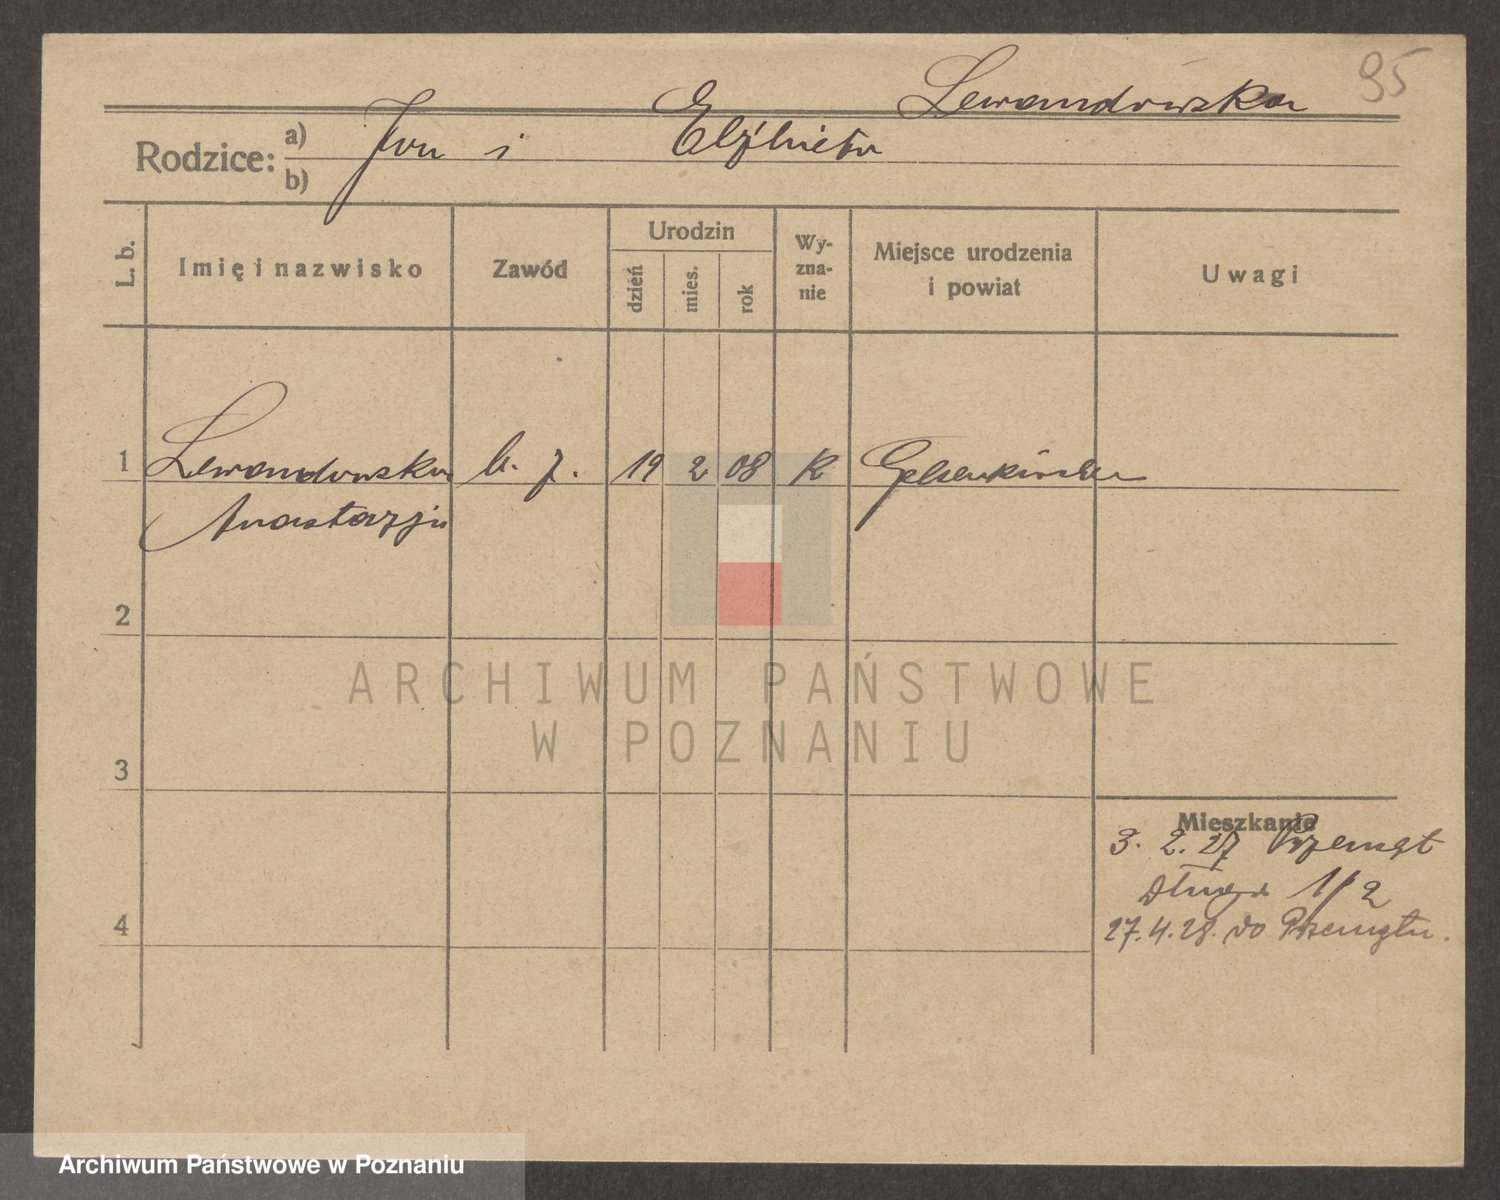 95
Lewandowska
Rodzice: a) Jan i Elżbieta
b)
L. b. Imię i nazwisko Zawód Urodzin dzień mies. rok Wyznanie Miejsce urodzenia i powiat Uwagi
1 Lewandowska b. z. 19 2 08 K Gelsenkirchen
Anastazja
2
3
4
Mieszkanie
3. 2. 27 Przemęt
Długa 1/2
27.4.28. do Przemętu.
ARCHIWUM PAŃSTWOWE
W POZNANIU
Archiwum Państwowe w Poznaniu